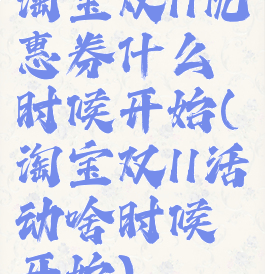 淘宝双11优
惠券什么
时候开始(
淘宝双11活
动啥时候
开始)